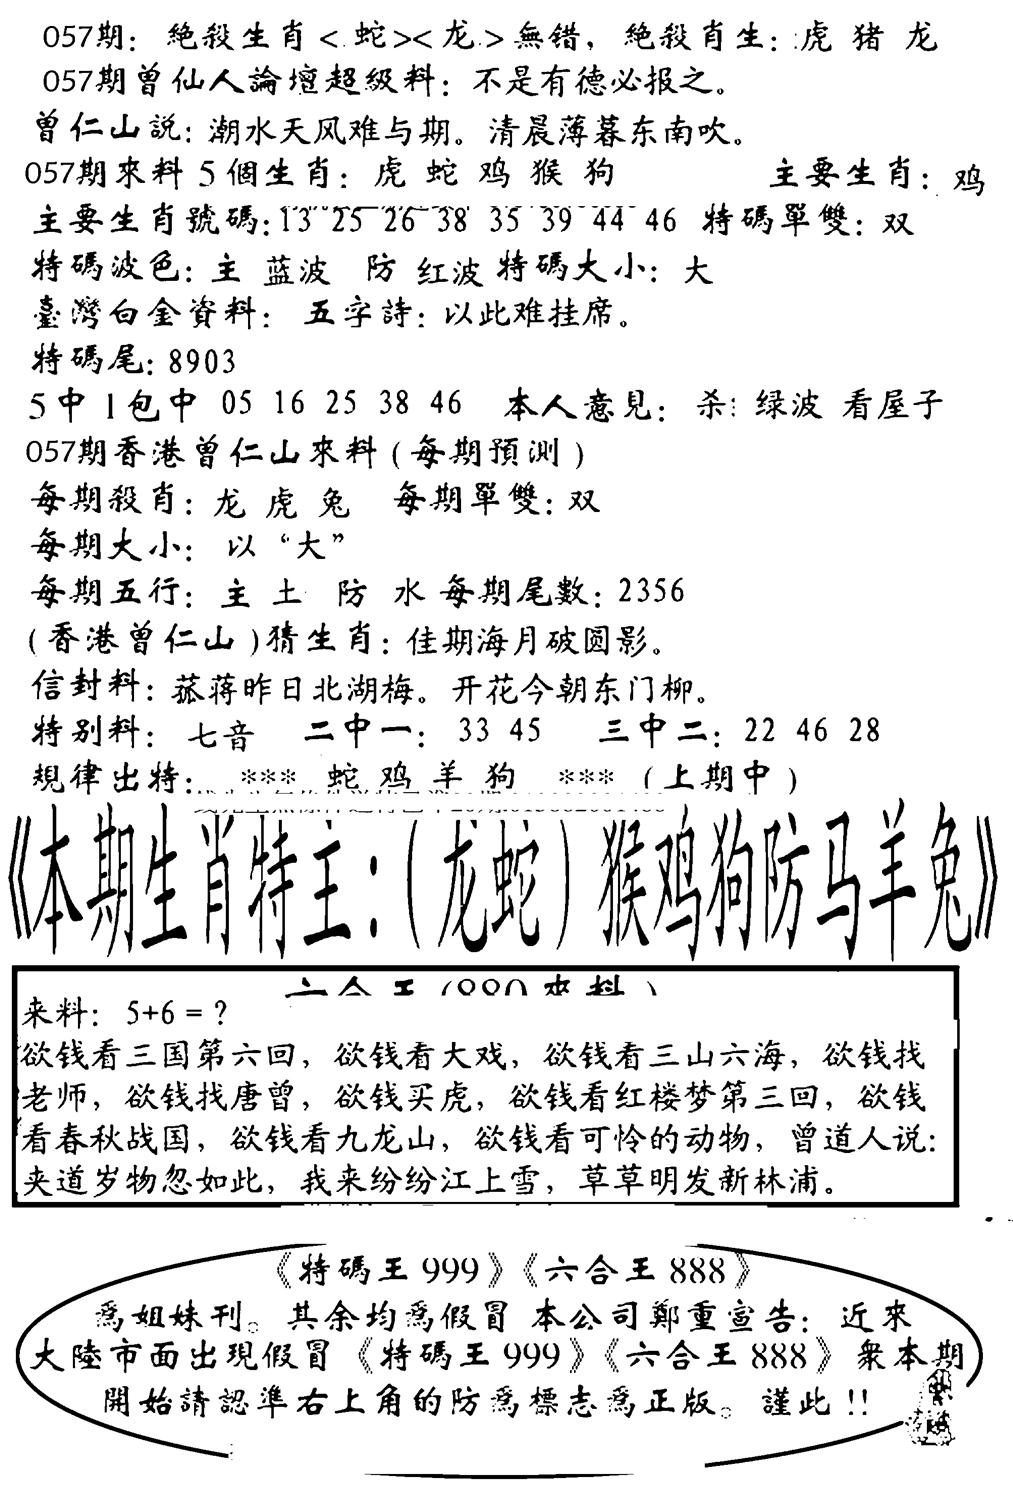 057期：絶殺生肖<蛇><龙>無错，絶殺肖生：虎 猪 龙
057期曾仙人論壇超級料：不是有德必报之。
曾仁山説：潮水天风难与期。清晨薄暮东南吹。
057期來料5個生肖：虎 蛇 鸡 猴 狗 主要生肖：鸡
主要生肖號碼：13 25 26 38 35 39 44 46 特碼單雙：双
特碼波色：主 蓝波 防 红波 特碼大小：大
臺灣白金資料： 五字詩：以此难挂席。
特碼尾：8903
5中1包中 05 16 25 38 46 本人意見：杀：绿波 看屋子
057期香港曾仁山來料(每期預測)
每期殺肖：龙 虎 兔 每期單雙：双
每期大小： 以“大”
每期五行： 主 土 防 水 每期尾數：2356
(香港曾仁山)猜生肖：佳期海月破圆影。
信封料：菰蒋昨日北湖梅。开花今朝东门柳。
特别料： 七音 二中一： 33 45 三中二：22 46 28
規律出特： *** 蛇 鸡 羊 狗 *** (上期中)
《本期生肖特主：(龙蛇)猴鸡狗防马羊兔》
来料： 5+6=？
欲钱看三国第六回，欲钱看大戏，欲钱看三山六海，欲钱找
老师，欲钱找唐曾，欲钱买虎，欲钱看红楼梦第三回，欲钱
看春秋战国，欲钱看九龙山，欲钱看可怜的动物，曾道人说：
夹道岁物忽如此，我来纷纷江上雪，草草明发新林浦。
《特碼王999》《六合王888》
爲姐妹刊。其余均爲假冒 本公司鄭重宣告：近來
大陸市面出現假冒《特碼王999》《六合王888》衆本期
開始請認準右上角的防爲標志爲正版。謹此!!